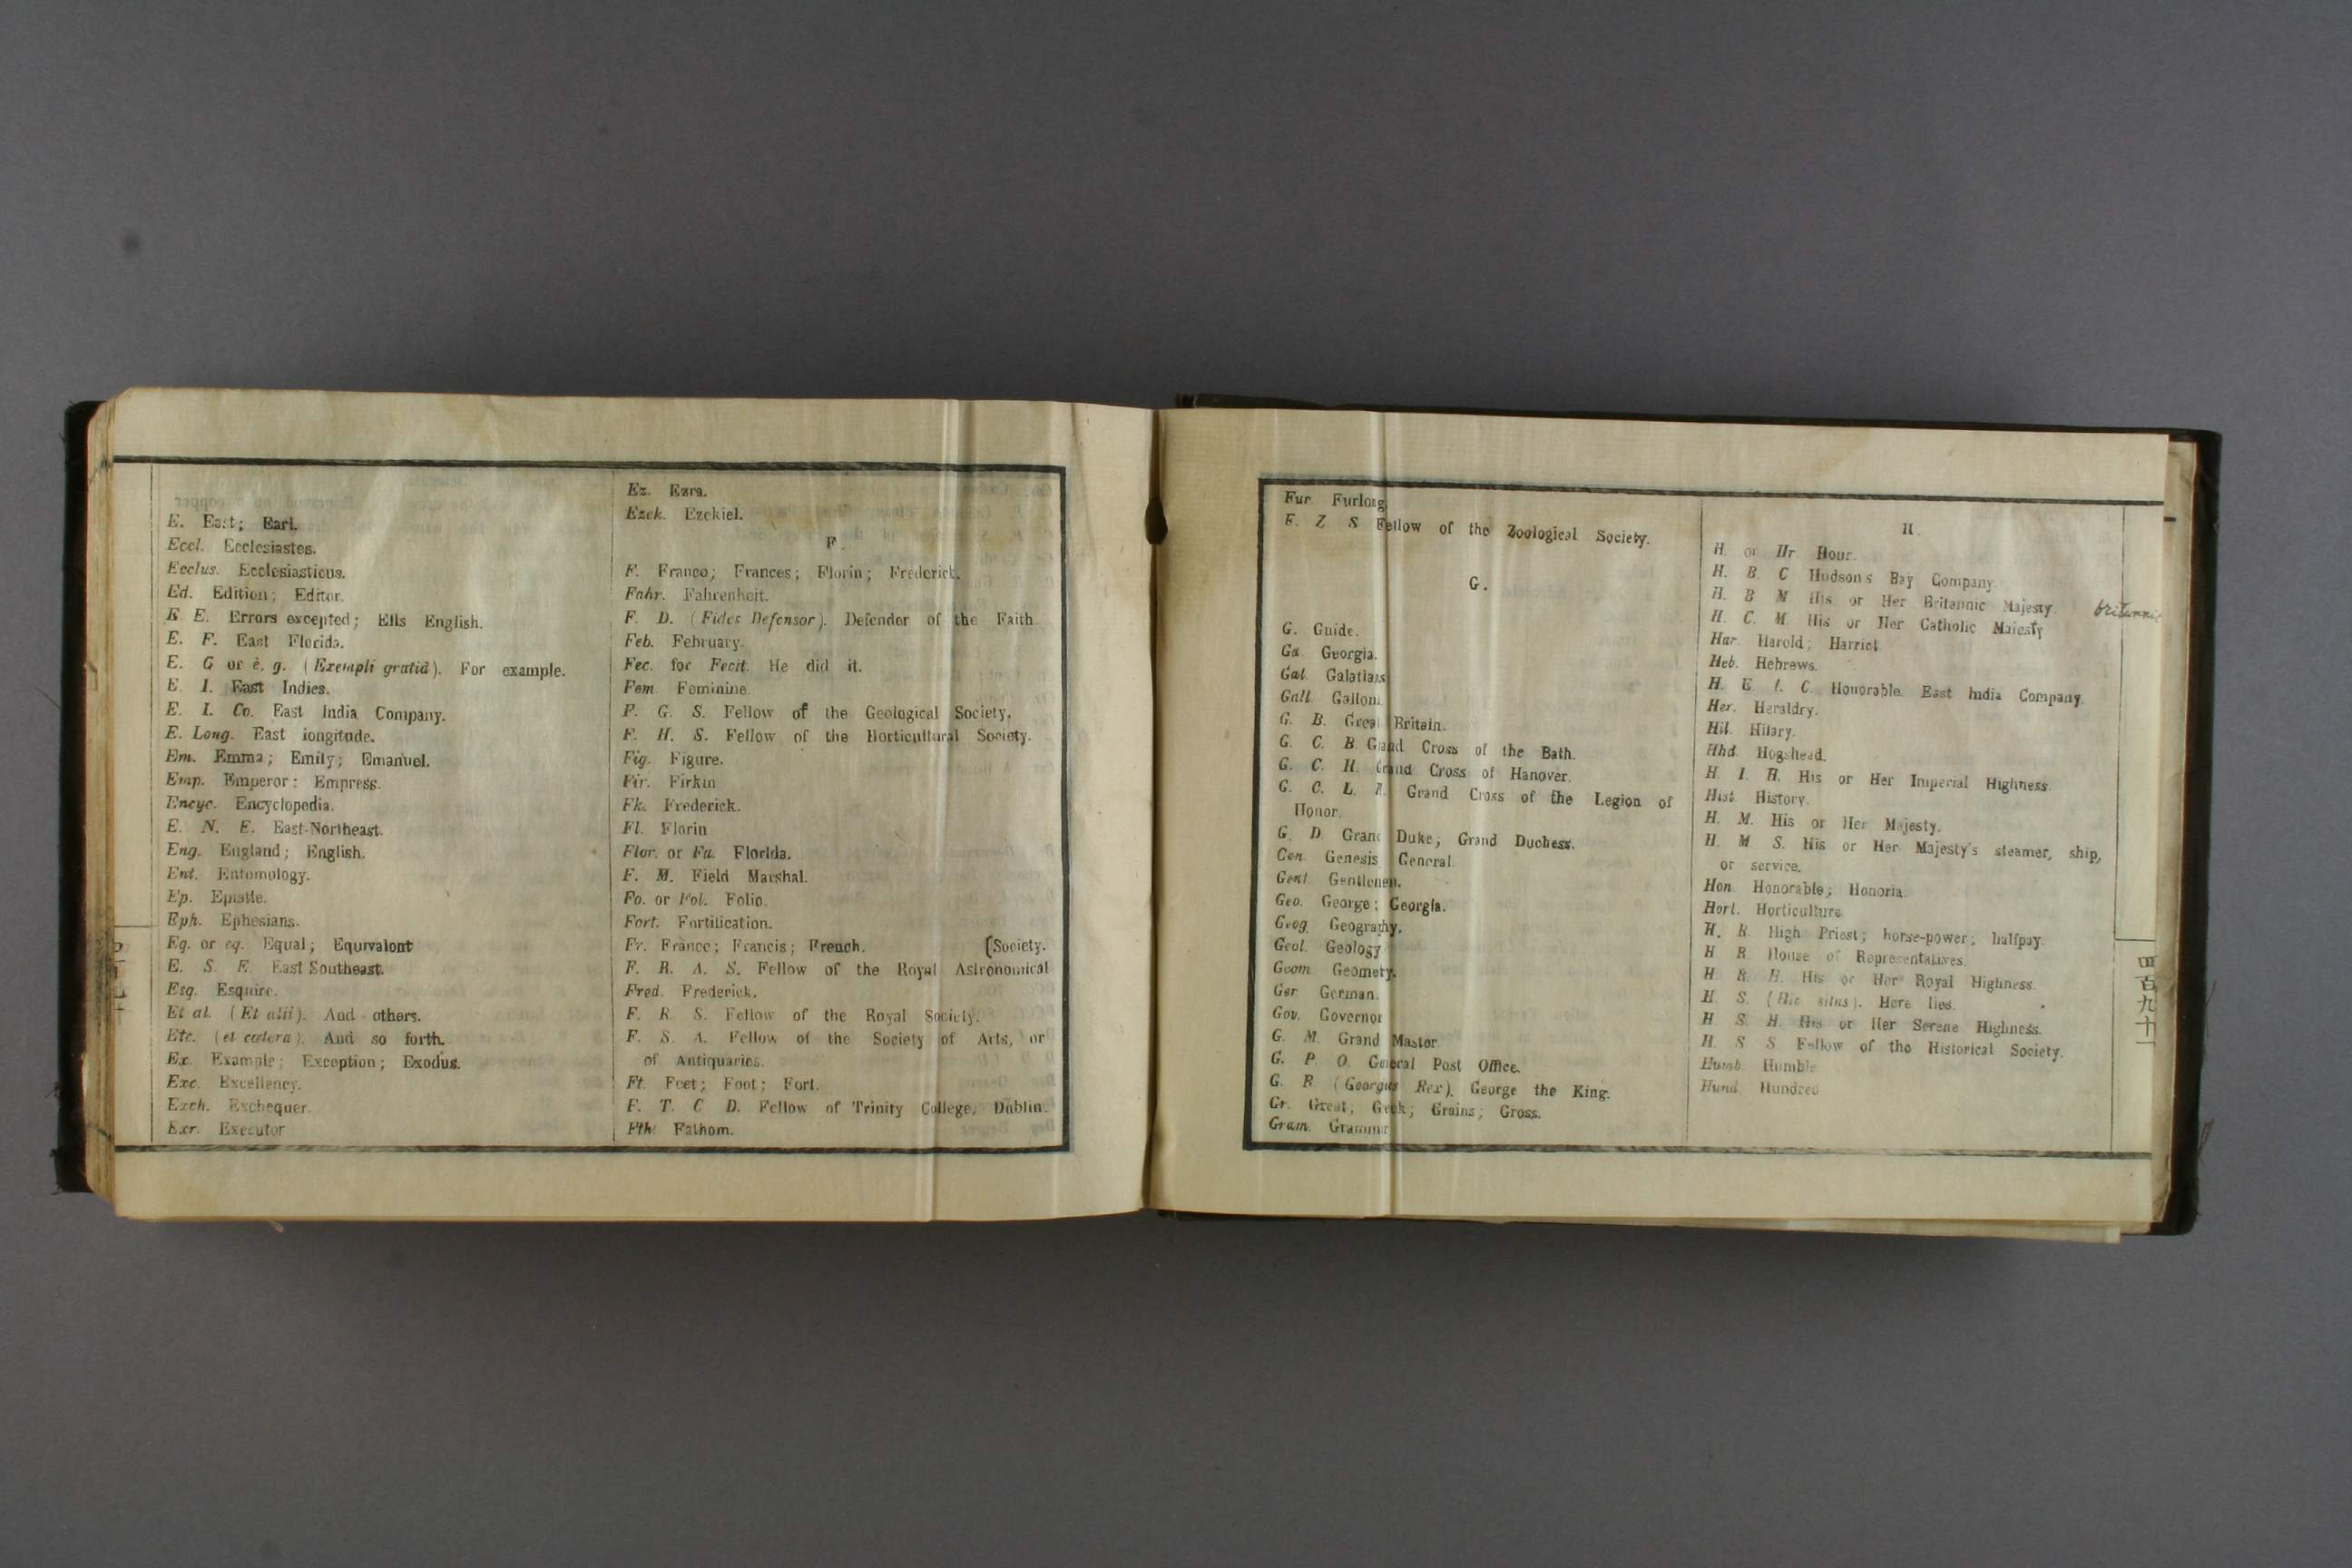 E. East; Earl.
Eccl. Ecclesiastes.
Ecclus. Ecclesiasticus.
Ed. Edition; Editor.
E. E. Errors excepted; Ells English.
E. F. East Florida.
E. G or e. g. (Exempli gratiâ). For example.
E. I. East Indies.
E. I. Co. East India Company.
E. Long. East longitude.
Em. Emma; Emily; Emanuel.
Emp. Emperor: Empress.
Encyc. Encyclopedia.
E. N. E. East-Northeast.
Eng. England; English.
Ent. Entomology.
Ep. Epistle.
Eph. Ephesians.
Eq. or eq. Equal; Equivalent
E. S. E. East Southeast.
Esq. Esquire.
Et al. (Et alii). And others.
Etc. (et cœtera). And so forth.
Ex. Example; Exception; Exodus.
Exc. Excellency.
Exch. Exchequer.
Exr. Executor
Ez. Ezra.
Ezek. Ezekiel.
F.
F. France; Frances; Florin; Frederick.
Fahr. Fahrenheit.
F. D. (Fides Defensor). Defender of the Faith.
Feb. February.
Fec. for Fecit. He did it.
Fem. Feminine.
F. G. S. Fellow of the Geological Society.
F. H. S. Fellow of the Horticultural Society.
Fig. Figure.
Fir. Firkin
Fk. Frederick.
Fl. Florin
Flor. or Fa. Florida.
F. M. Field Marshal.
Fo. or Fol. Folio.
Fort. Fortification.
Fr. France; Francis; French. (Society.
F. R. A. S. Fellow of the Royal Astronomical
Fred. Frederick.
F. R. S. Fellow of the Royal Society.
F. S. A. Fellow of the Society of Arts, or
of Antiquaries.
Ft. Feet; Foot; Fort.
F. T. C D. Fellow of Trinity College, Dublin.
Fth. Fathom.
Fur. Furlong
F. Z S Fellow of the Zoological Society.
G.
G. Guide.
Ga. Georgia.
Gal. Galatians
Gall. Gallon.
G. B. Great Britain.
G. C. B. Grand Cross of the Bath.
G. C. H. Grand Cross of Hanover.
G. C. L. H. Grand Cross of the Legion of
Honor.
G. D. Grand Duke; Grand Duchess.
Gen. Genesis General.
Gent. Gentlemen.
Geo. George; Georgia.
Geog. Geography.
Geol. Geology
Geom. Geometry.
Ger. German.
Gov. Governor
G. M. Grand Master.
G. P. O. General Post Office.
G. R (Georgus Rex). George the King.
Gr. Great; Greek; Grains; Gross.
Gram. Grammar
H.
H. or Hr Hour.
H. B C Hudsons Bay Company.
H. B M His or Her Britannic Majesty.
britannic
H. C. M. His or Her Catholic Majesty
Har. Harold; Harriet.
Heb. Hebrews.
H. E. I. C. Honorable East India Company.
Her. Heraldry.
Hil. Hilary.
Hhd. Hogshead.
H. I. H. His or Her Imperial Highness.
Hist. History.
H. M. His or Her Majesty.
H. M S. His or Her Majesty's steamer, ship,
or service.
Hon. Honorable; Honoria.
Hort. Horticulture.
H. P. High Priest; horse-power; halfpay.
H R. House of Representatives.
H. R. H. His or Her Royal Highness.
H S. (Hic situs). Here lies.
H S. H. His or Her Serene Highness.
H. S S Fellow of the Historical Society.
Humb. Humble
Hund. Hundred
四百九十一